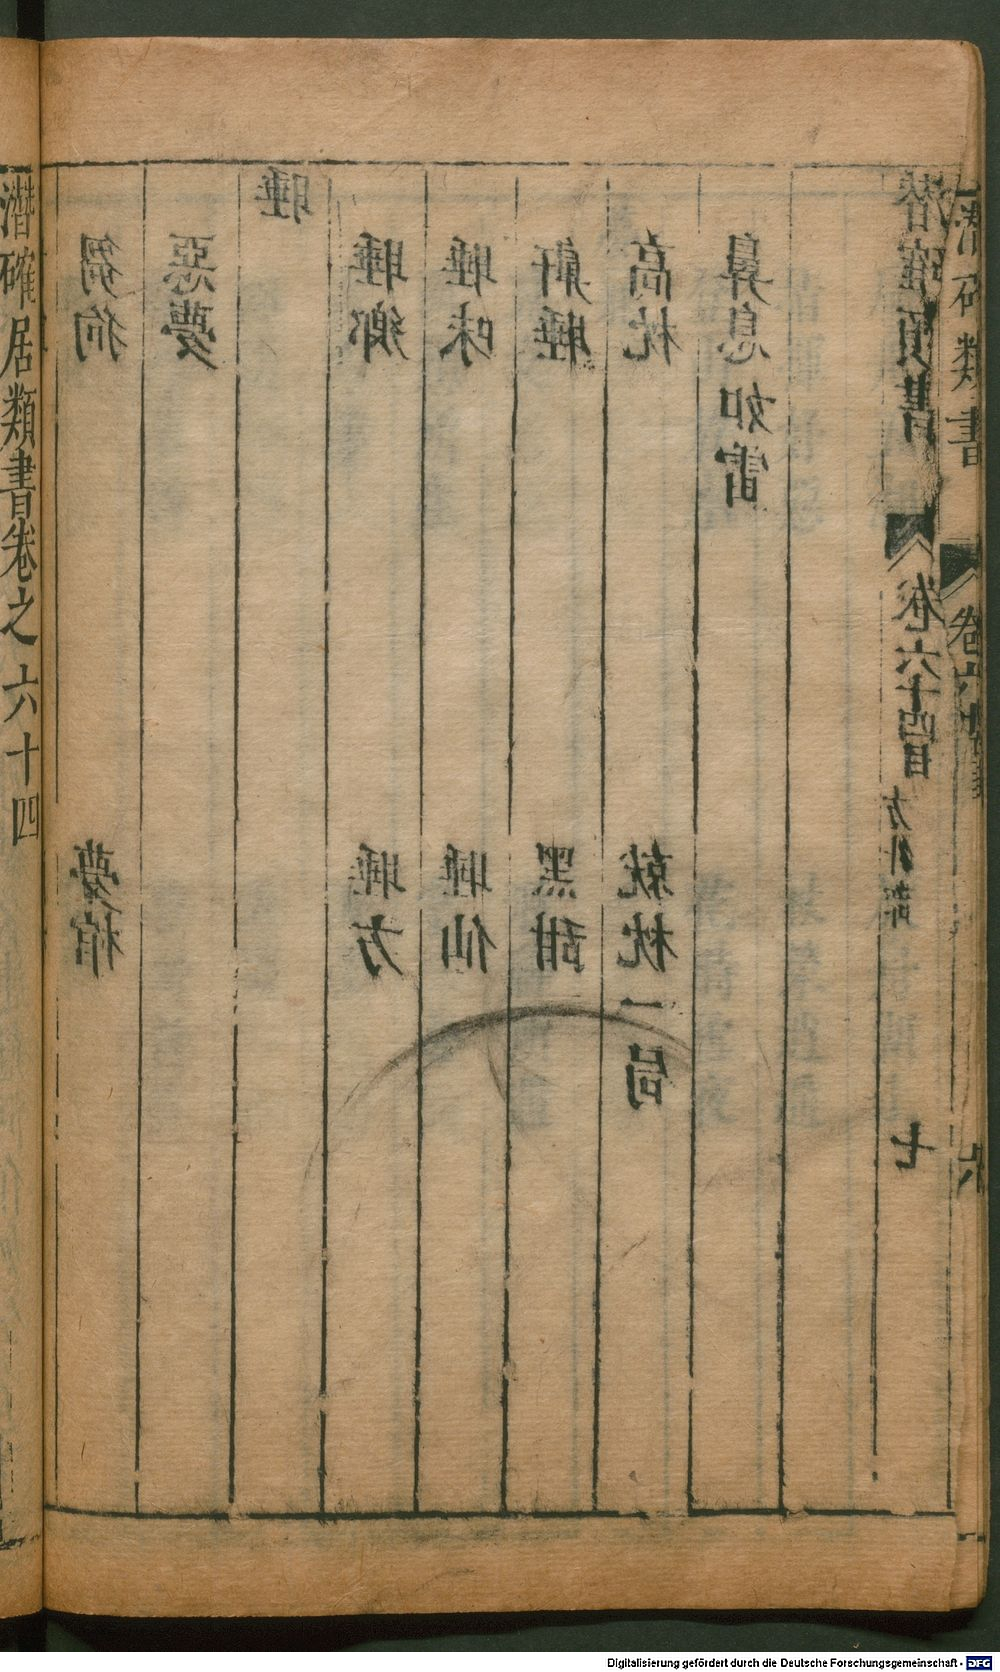 潛確居類書卷之六十四
芻狗 夢棺
惡夢
睡
睡鄉 睡方
睡味 睡仙
鼾睡 黑甜
高枕 就枕一局
鼻息如雷
潛確類書 卷六十四目 方外部 七
潛确類書 卷六 六
Digitalisierung gefördert durch die Deutsche Forschungsgemeinschaft - DFG